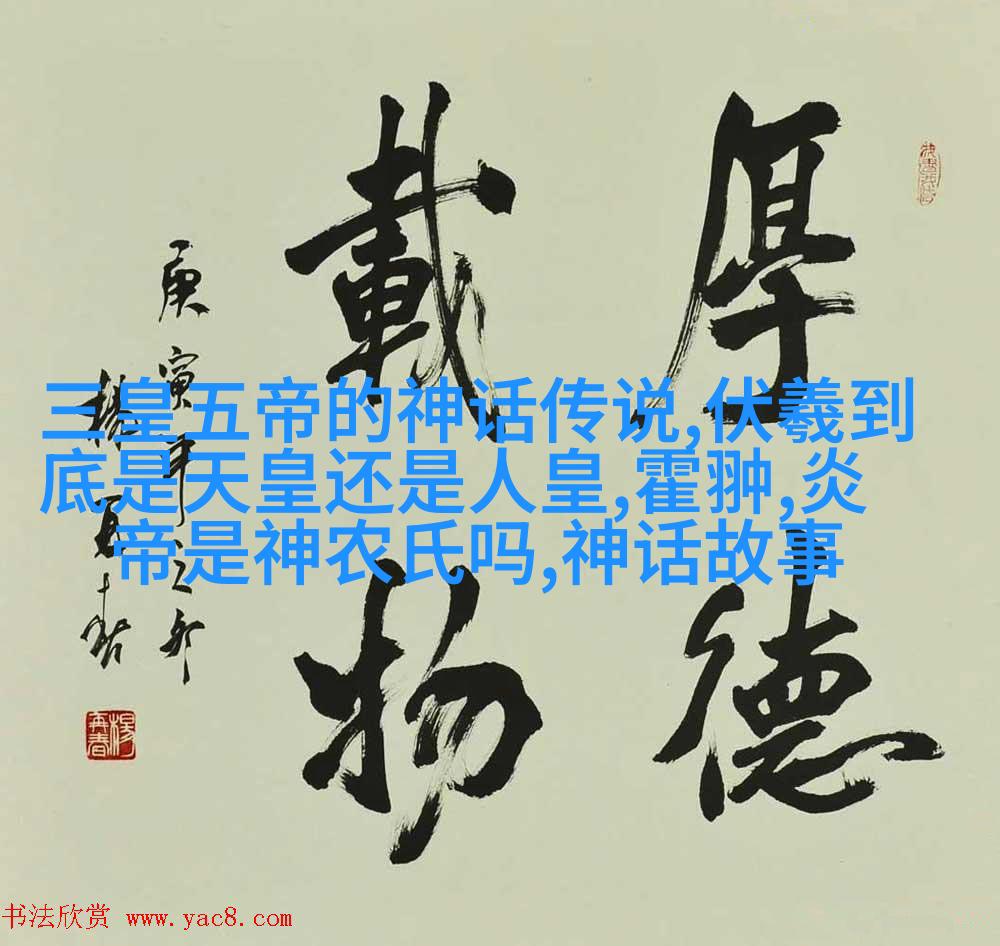 厚德
載物
庚寅年
楊再春
楊再春
三皇五帝的神话传说,伏羲到
底是天皇还是人皇,霍翀,炎
帝是神农氏吗,神话故事
书法欣赏 www.yac8.com